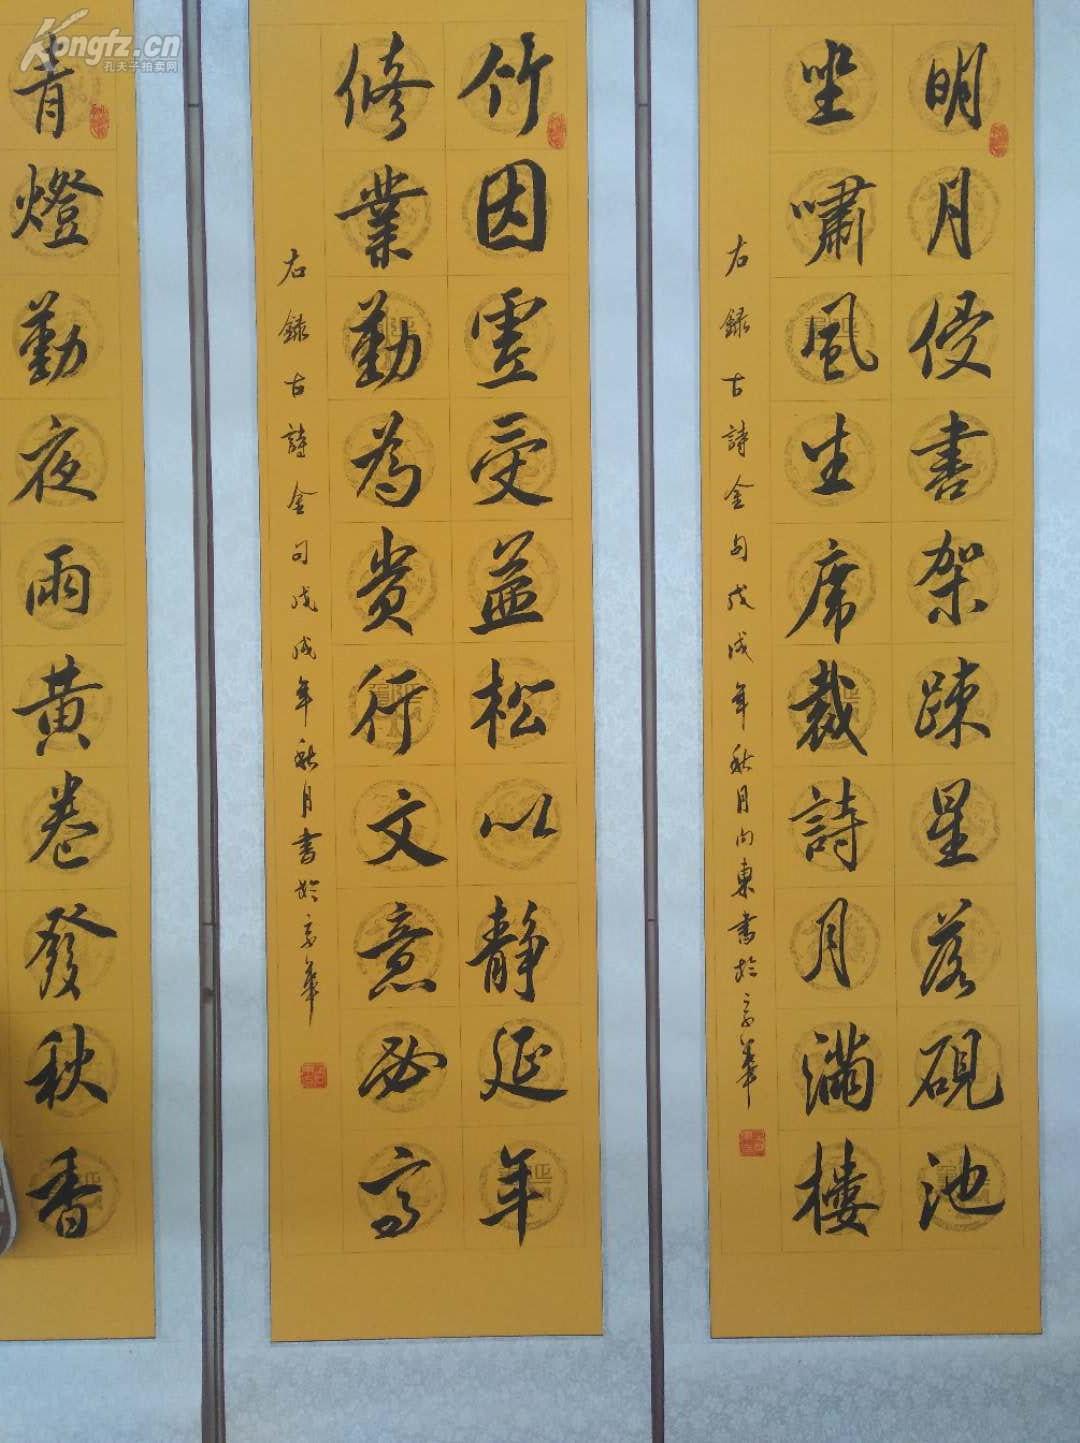 明月侵書架疎星落硯池
坐嘯風生席裁詩月滿樓
右錄古詩金句戊戌年秋月向東書於京華
竹因虛受益松以静延年
修業勤為貴行文意必高
右錄古詩金句戊戌年秋月書於京華
青燈勤夜雨黄卷發秋香
Kongfz.cn
孔夫子拍卖网